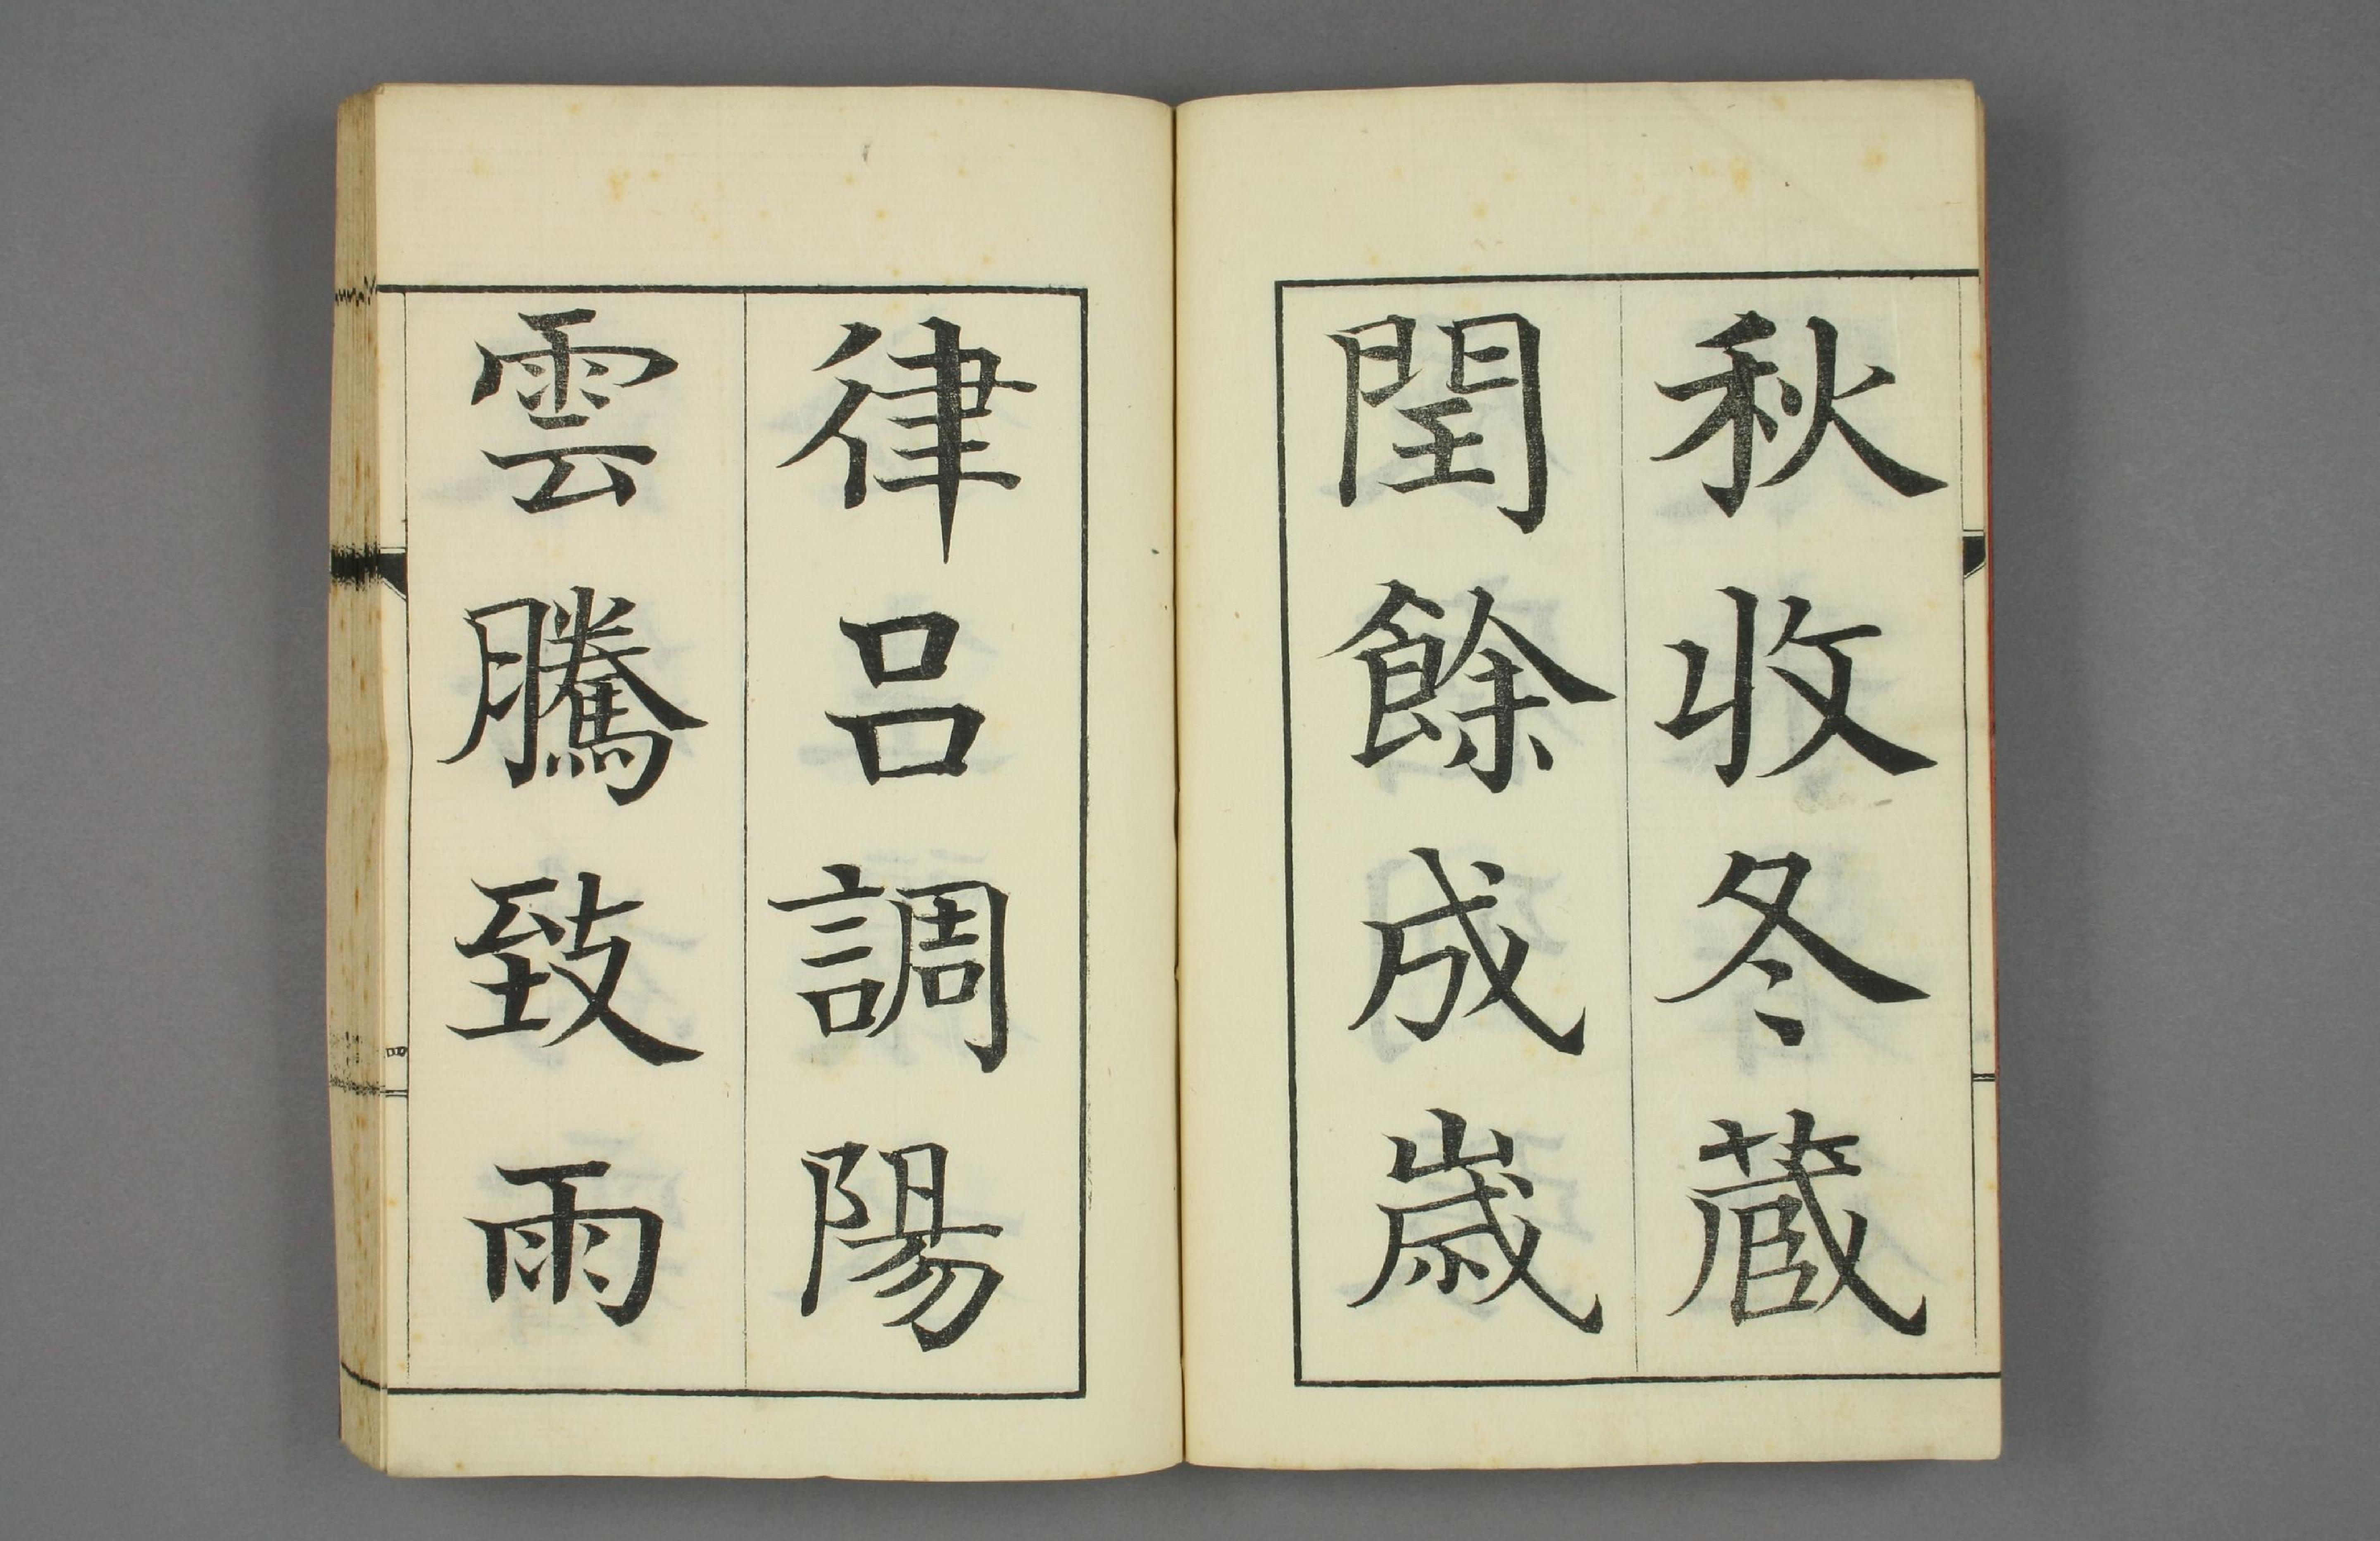 秋收冬蔵
閏餘成歳
律呂調陽
雲騰致雨
四